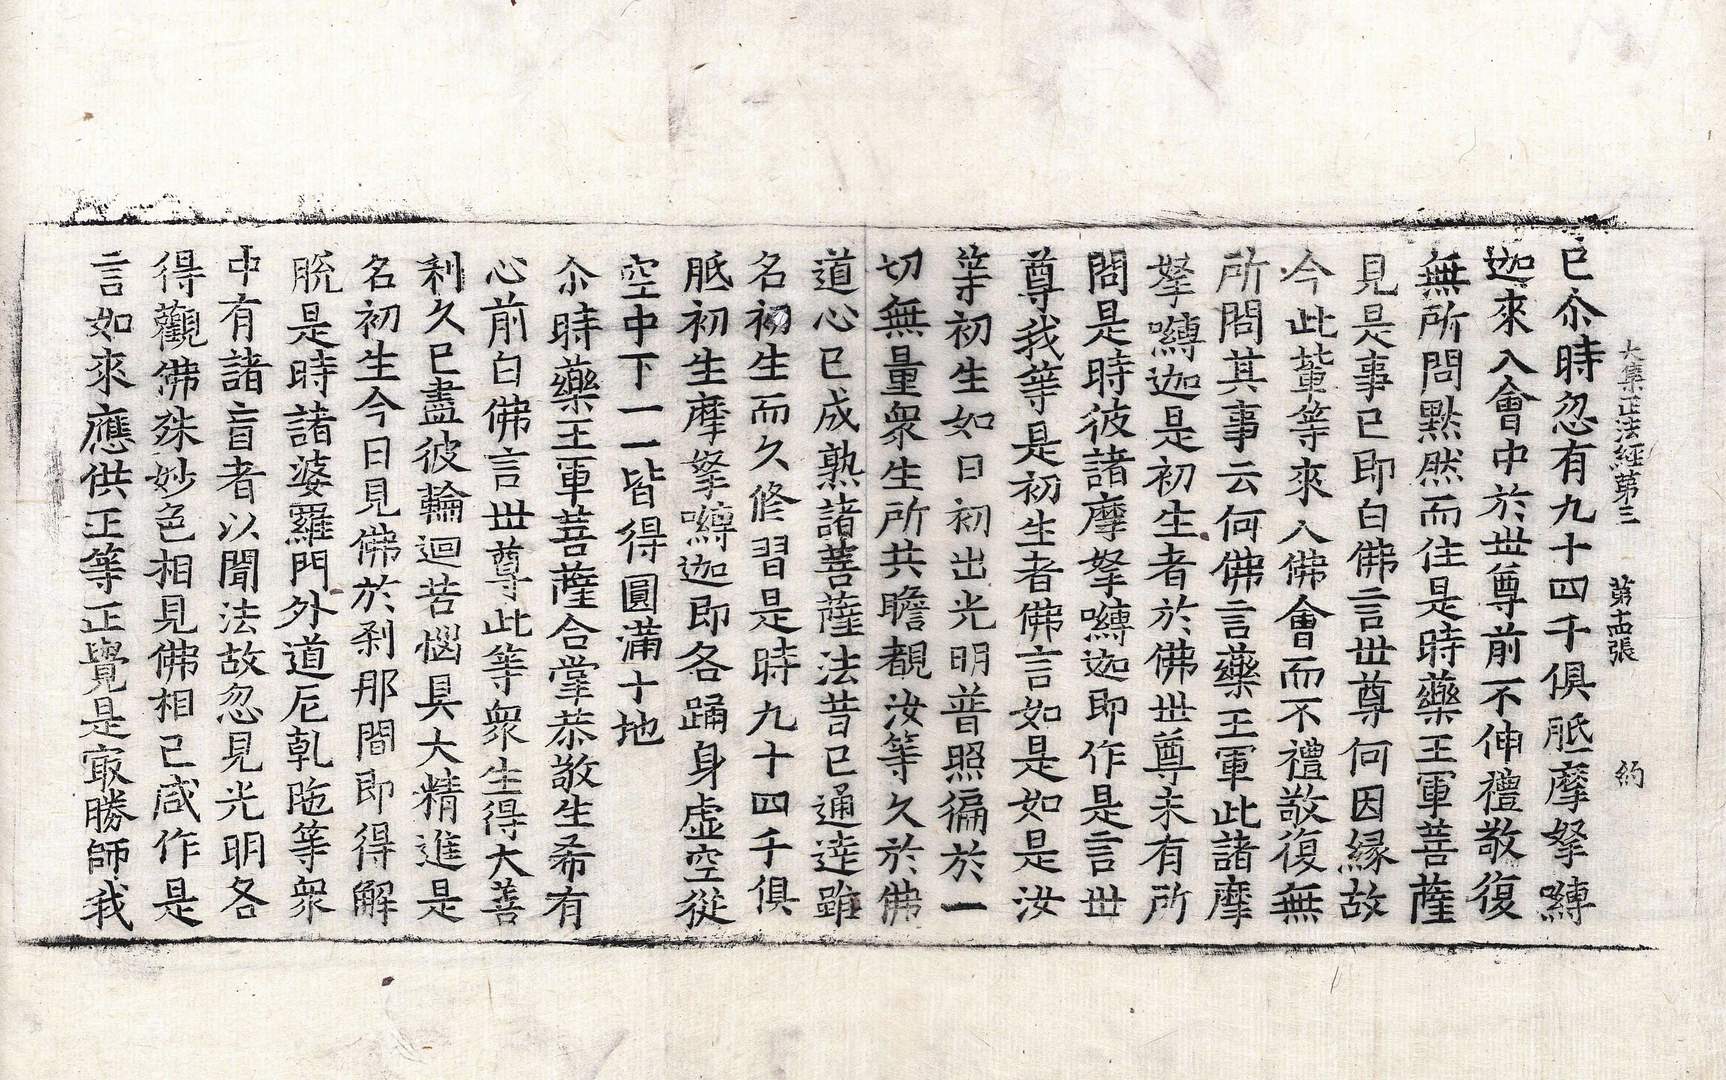 大集正法經第三　第十四張　約
已尒時忽有九十四千俱胝摩拏嚩
迦來入會中於世尊前不伸禮敬復
無所問黙然而住是時藥王軍菩薩
見是事已即白佛言世尊何因緣故
今此輩等來入佛會而不禮敬復無
所問其事云何佛言藥王軍此諸摩
拏嚩迦是初生者於佛世尊未有所
問是時彼諸摩拏嚩迦即作是言世
尊我等是初生者佛言如是如是汝
等初生如日初出光明普照徧於一
切無量衆生所共瞻覩汝等久於佛
道心已成熟諸菩薩法昔已通達雖
名初生而久修習是時九十四千俱
胝初生摩拏嚩迦即各踊身虛空從
空中下一一皆得圓滿十地
尒時藥王軍菩薩合掌恭敬生希有
心前白佛言世尊此等衆生得大善
利久已盡彼輪迴苦惱具大精進是
名初生今日見佛於刹那間即得解
脫是時諸婆羅門外道尼乾陁等衆
中有諸盲者以聞法故忽見光明各
得觀佛殊妙色相見佛相已咸作是
言如來應供正等正覺是㝡勝師我